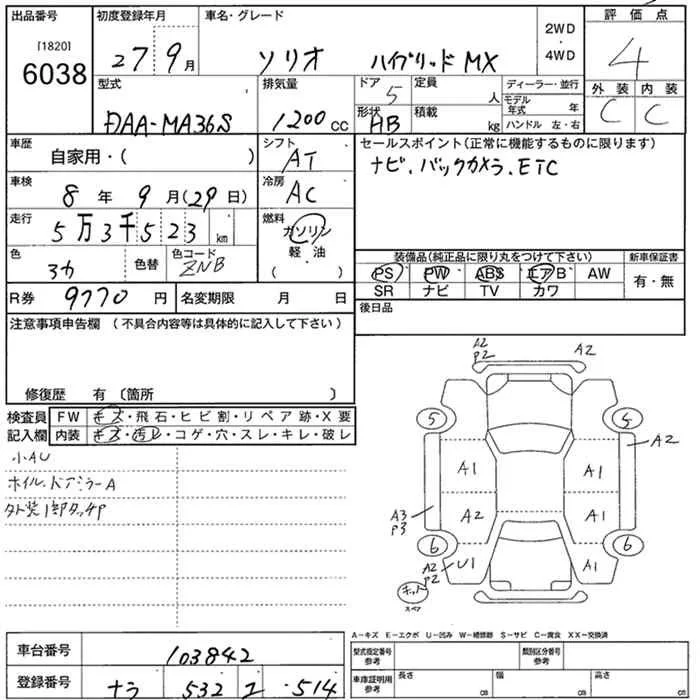 出品番号 初度登録年月 車名・グレード 2WD・4WD 評価点
[1820]
6038 27 9月 ソリオ ハイブリッド MX 4
型式 排気量 ドア 5 定員 人 ディーラー・並行 外装 内装
DAA-MA36S 1200 CC 形状 HB 積載 kg モデル年式 年 C C
ハンドル 左・右
車歴 シフト セールスポイント(正常に機能するものに限ります)
自家用・( ) AT ナビ.バックカメラ.ETC
車検 冷房
8年 9月(29日) AC
走行 燃料
5万3千523km ガソリン
軽・油
( )
色 色替 色コード 装備品(純正品に限り丸をつけて下さい) 新車保証書
ZNB PS PW ABS エアB AW 有・無
SR ナビ TV カワ
R券 9770円 名変期限 月 日 後日品
注意事項申告欄(不具合内容等は具体的に記入して下さい)
修復歴 有〔箇所 〕
検査員 FW キズ・飛石・ヒビ割・リペア跡・X要
記入欄 内装 キズ・汚レ・コゲ・穴・スレ・キレ・破レ
小AU
ホイル.ドアミラーA
外装1部タッチP
A2
P2
A2
5 5
A2
A1 A1
A3
P3
A2 A1
6 6
A2
P2
U1 A1
キット
スペア
A-キズ E-エクボ U-凹み W-補修跡 S-サビ C-腐食 XX-交換済
車台番号 103842 型式指定番号 参考 類別区分番号 参考
登録番号 ナラ 532 514 車庫証明用 参考 長さ cm 幅 cm 高さ cm